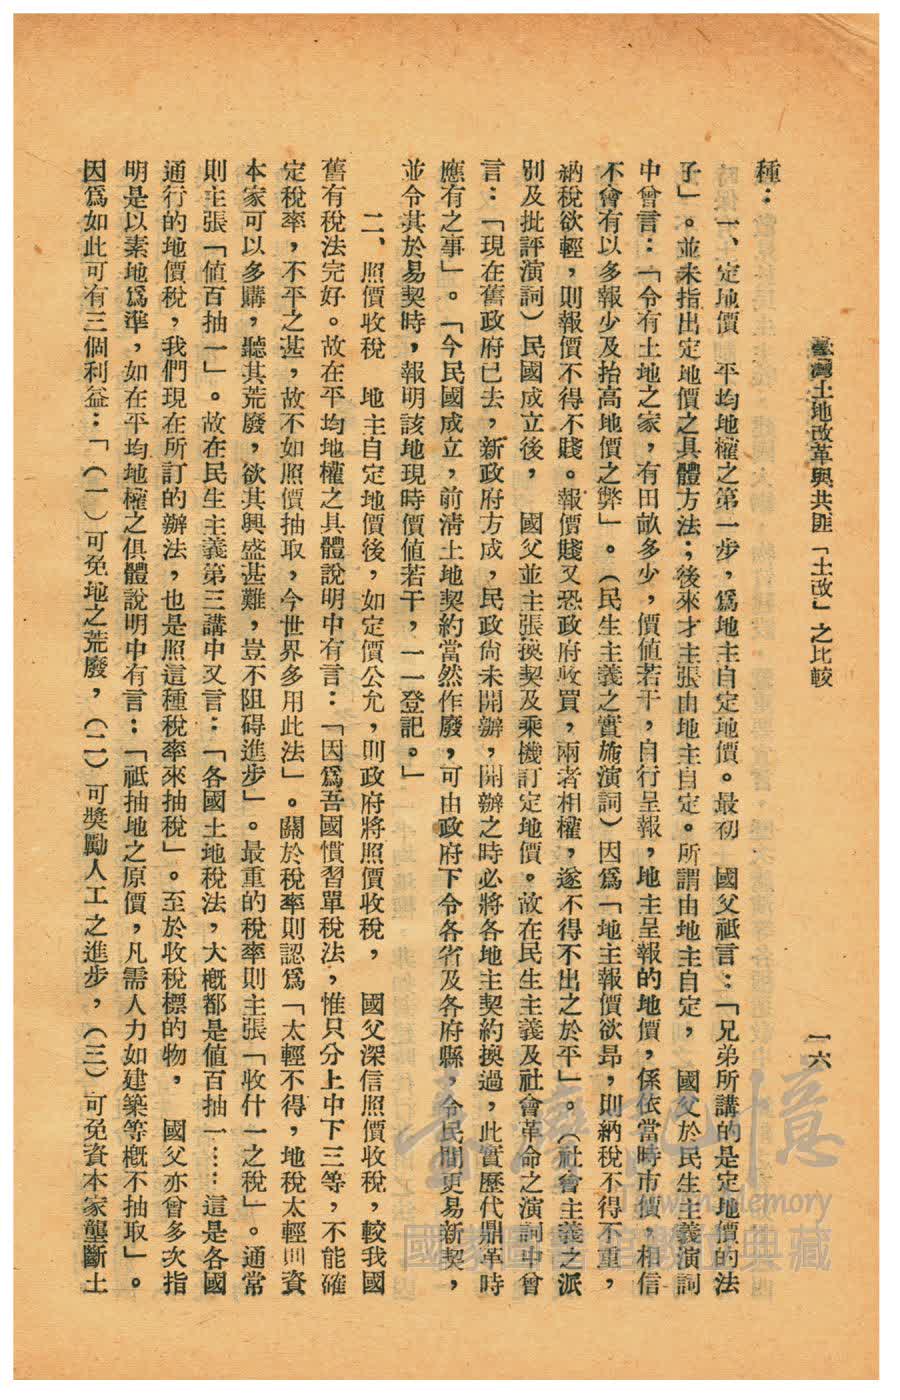 臺灣土地改革與共匪「土改」之比較
一六
種：
一、定地價　平均地權之第一步，爲地主自定地價。最初　國父祇言：「兄弟所講的是定地價的法
子」。並未指出定地價之具體方法；後來才主張由地主自定。所謂由地主自定，　國父於民生主義演詞
中曾言：「令有土地之家，有田畝多少，價值若干，自行呈報，地主呈報的地價，係依當時市價，相信
不會有以多報少及抬高地價之弊」。（民生主義之實施演詞）因爲「地主報價欲昂，則納稅不得不重，
納稅欲輕，則報價不得不賤。報價賤又恐政府收買，兩者相權，遂不得不出之於平」。（社會主義之派
別及批評演詞）民國成立後，　國父並主張換契及乘機訂定地價。故在民生主義及社會革命之演詞中曾
言：「現在舊政府已去，新政府方成，民政尙未開辦，開辦之時必將各地主契約換過，此實歷代鼎革時
應有之事」。「今民國成立，前淸土地契約當然作廢，可由政府下令各省及各府縣，令民間更易新契，
並令其於易契時，報明該地現時價值若干，一一登記。」
二、照價收稅　地主自定地價後，如定價公允，則政府將照價收稅，　國父深信照價收稅，較我國
舊有稅法完好。故在平均地權之具體說明中有言：「因爲吾國慣習單稅法，惟只分上中下三等，不能確
定稅率，不平之甚，故不如照價抽取，今世界多用此法」。關於稅率則認爲「太輕不得，地稅太輕則資
本家可以多購，聽其荒廢，欲其興盛甚難，豈不阻碍進步」。最重的稅率則主張「收什一之稅」。通常
則主張「值百抽一」。故在民生主義第三講中又言：「各國土地稅法，大槪都是值百抽一……這是各國
通行的地價稅，我們現在所訂的辦法，也是照這種稅率來抽稅」。至於收稅標的物，　國父亦曾多次指
明是以素地爲準，如在平均地權之俱體說明中有言：「祗抽地之原價，凡需人力如建築等槪不抽取」。
因爲如此可有三個利益：「（一）可免地之荒廢，（二）可獎勵人工之進步，（三）可免資本家壟斷土
臺灣記憶
Taiwan Memory
國家圖書館數位典藏